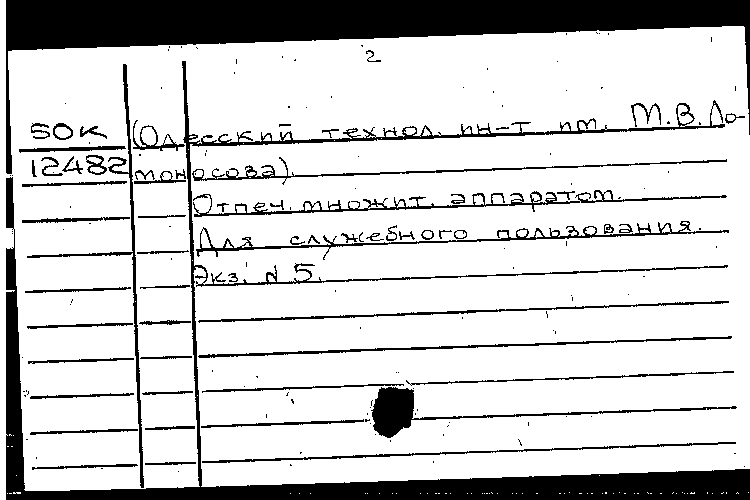 2
SOK (Одесский технол. ин-т им. М.В. Ло-
12482 моносова).
Отпеч. множит. аппаратом.
Для служебного пользования.
Экз. N 5.